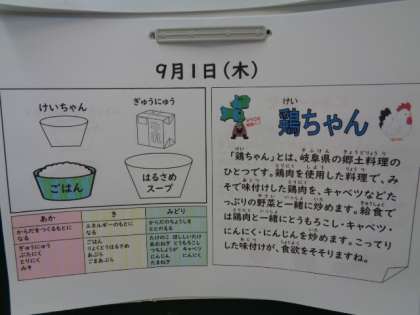 9月1日(木)
けいちゃん
ぎゅうにゅう
ごはん
はるさめ
スープ
あか
き
みどり
からだをつくるもとに
なる
エネルギーのもとに
なる
からだのちょうしを
ととのえる
ぎゅうにゅう
ぶたにく
とりにく
みそ
ごはん
りょくとうはるさめ
あぶら
ごまあぶら
たけのこ ほししいたけ
あおねぎ とうもろこし
つちしょうが キャベツ
にんじん にんにく
たまねぎ
鶏ちゃん
「鶏ちゃん」とは、岐阜県の郷土料理の
ひとつです。鶏肉を使用した料理で、み
そで味付けした鶏肉を、キャベツなどた
っぷりの野菜と一緒に炒めます。給食で
は鶏肉と一緒にとうもろこし・キャベツ・
にんにく・にんじんを炒めます。こってり
した味付けが、食欲をそそりますね。